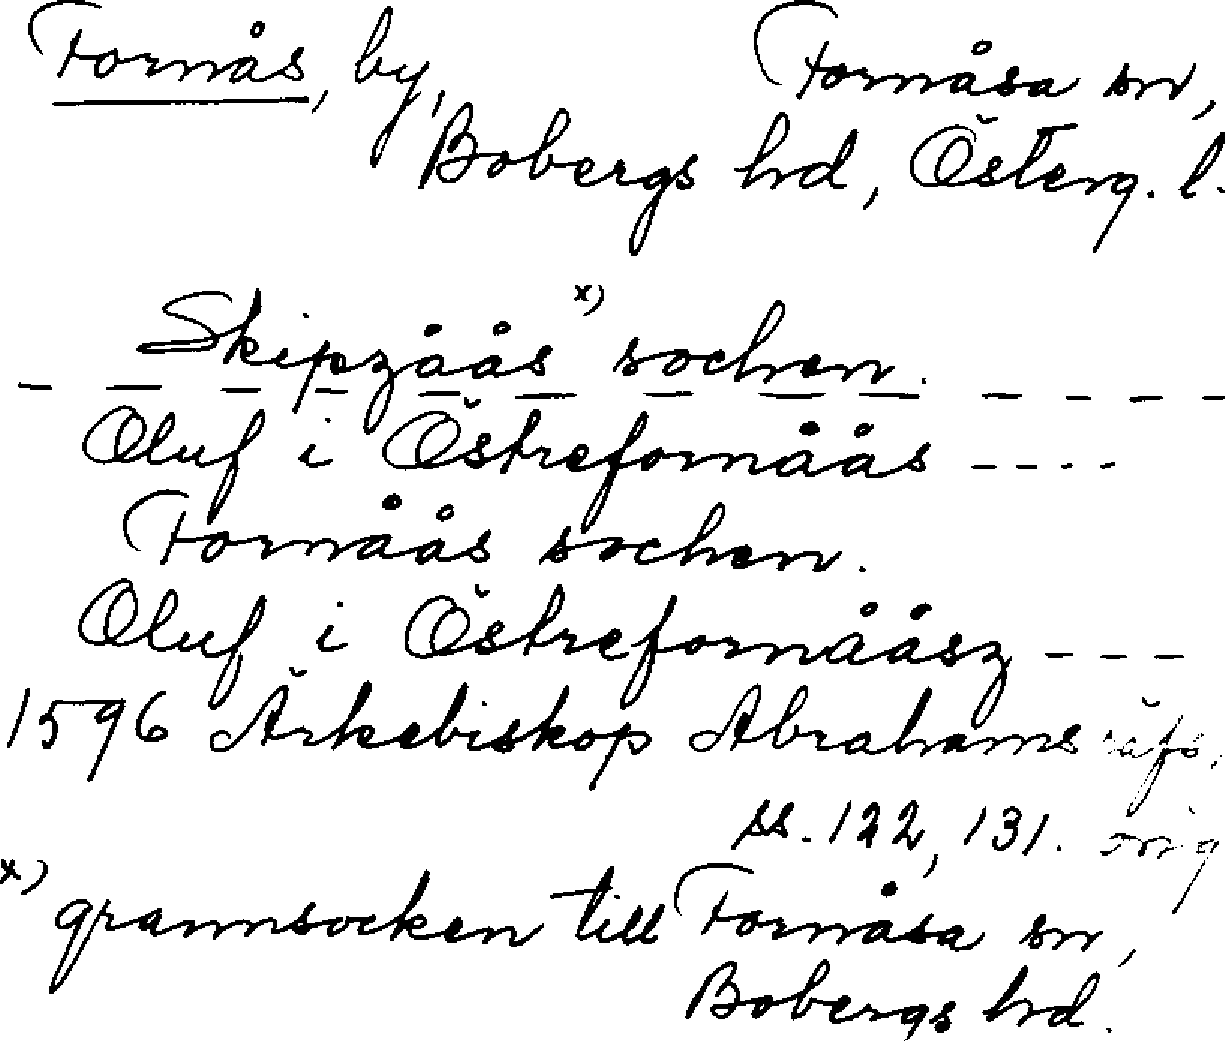 Fornås, by, Fornåsa sn,
Bobergs hrd, Österg. l.
Skipzåås x) sochen.
- - - - - - - - - - - - -
Oluf i Östrefornåås - - - -
Fornåås sochen.
Oluf i Östrefornååsz - - -
1596 Ärkebiskop Abrahams räfs.
ss. 122, 131. orig
x) grannsocken till Fornåsa sn,
Bobergs hrd.